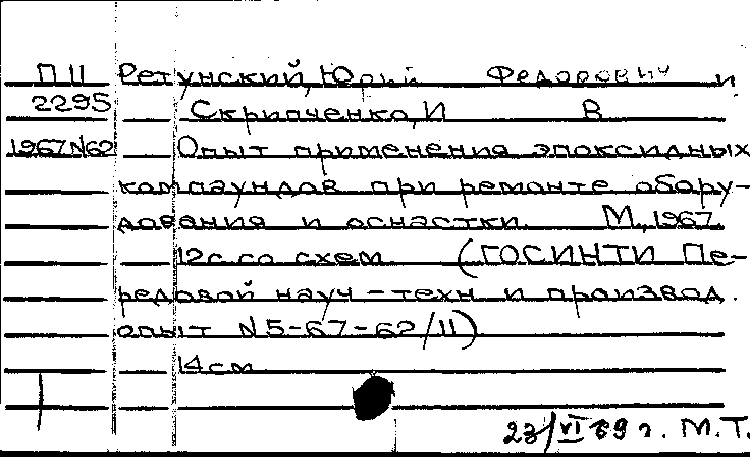 П 11 Ретунский, Юрий Федорович и
2295 Скрипченко, И В
1967 N62 Опыт применения эпоксидных
компаундов при ремонте обору-
дования и оснастки. М., 1967.
12с. со схем. (ГОСИНТИ Пе-
редовой науч-техн и производ.
опыт N 5-67-62/11)
14см
23/VI 69 г. М.Т.